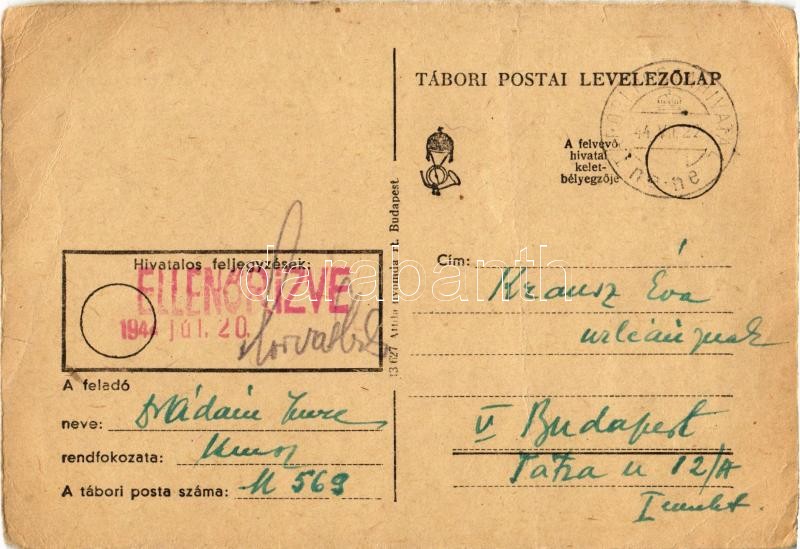 TÁBORI POSTAI LEVELEZŐLAP
A felvevő
hivatal
kelet-
bélyegzője
Hivatalos feljegyzések:
ELLENŐRIZVE
1944 JÚL. 20.
13 627 Attila nyomda rt. Budapest.
Cím: Krausz Éva
úrleánynak
V Budapest
Tátra u 12/A
I emelet.
A feladó
neve: Dr Ádám Imre
rendfokozata: Kmsz
A tábori posta száma: M 569
darabanth